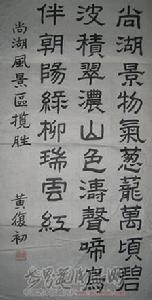 尚湖景物氣蔥蘢萬頃碧
波積翠濃山色濤聲啼鳥
伴朝陽綠柳瑞雲紅
尚湖風景區攬勝
黃復初